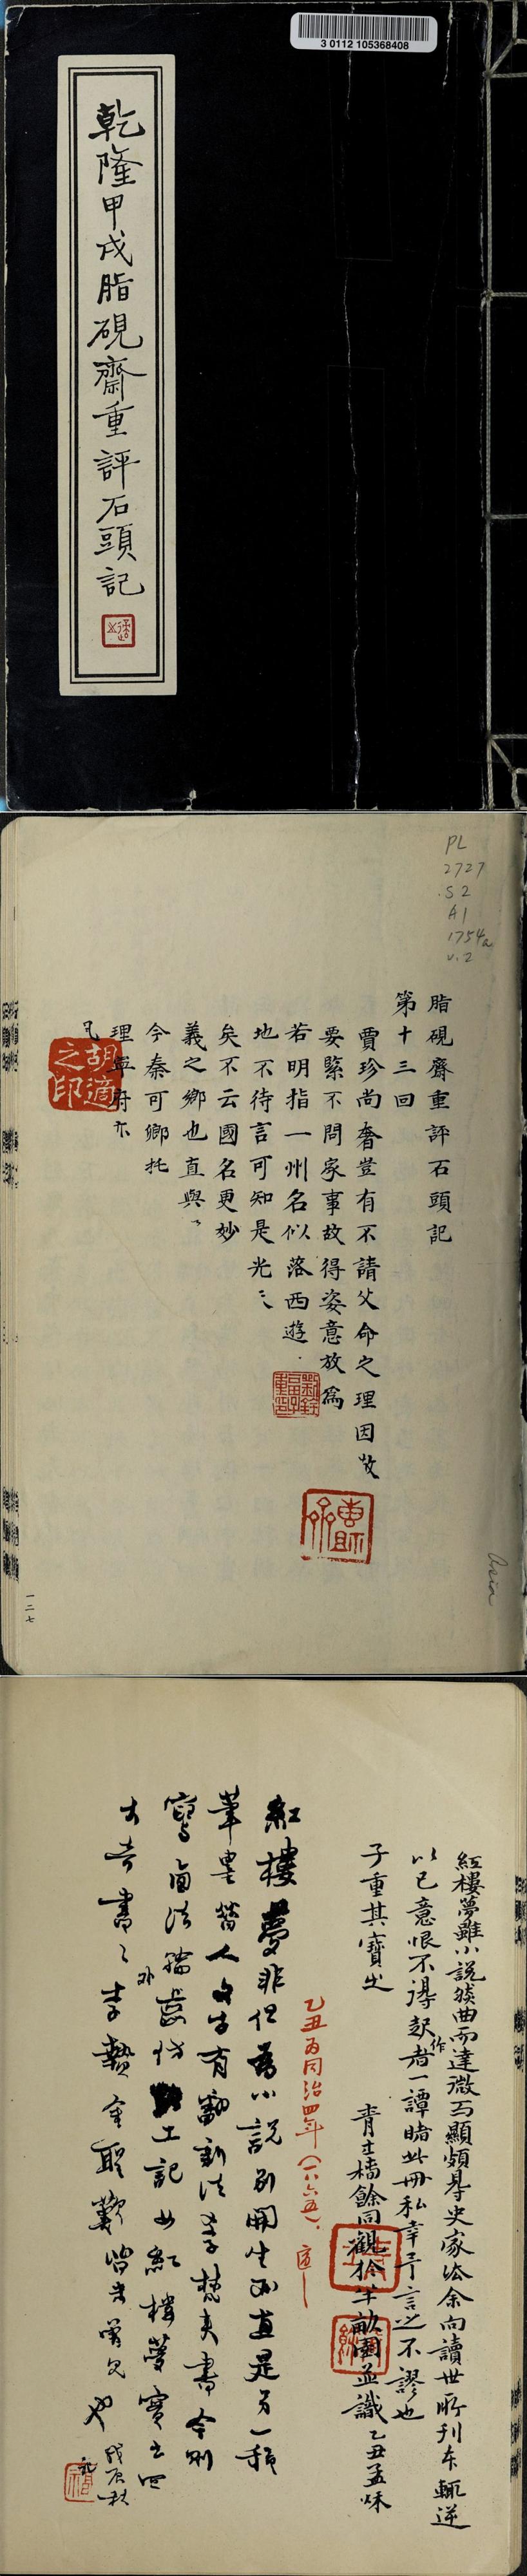 3 0112 105368408
乾隆甲戌脂硯齋重評石頭記
PL
2727
.S2
A1
1754a
v.2
脂硯齋重評石頭記
第十三回
賈珍尚奢豈有不請父命之理因敬
要緊不問家事故得姿意放爲
若明指一州名似落西遊
地不待言可知是光〻
矣不云國名更妙
義之鄉也直與
今秦可卿托
理寧府亦
凡
胡適之印
Asia
一二七
紅樓夢雖小說然曲而達微而顯頗得史家法余向讀世所刊本輒逆
以己意恨不得起作者一譚睹此冊私幸予言之不謬也
子重其寶之
青士椿餘同觀於半畝園並識乙丑孟秋
乙丑為同治四年(一八六五)。適
紅樓夢非但為小說別開生面直是另一種
筆墨昔人文字有翻新法學梵夾書今則
寫西法輪齒仿考工記如紅樓夢實出四
大奇書之外李贄金聖歎皆未曾見也
戊辰秋